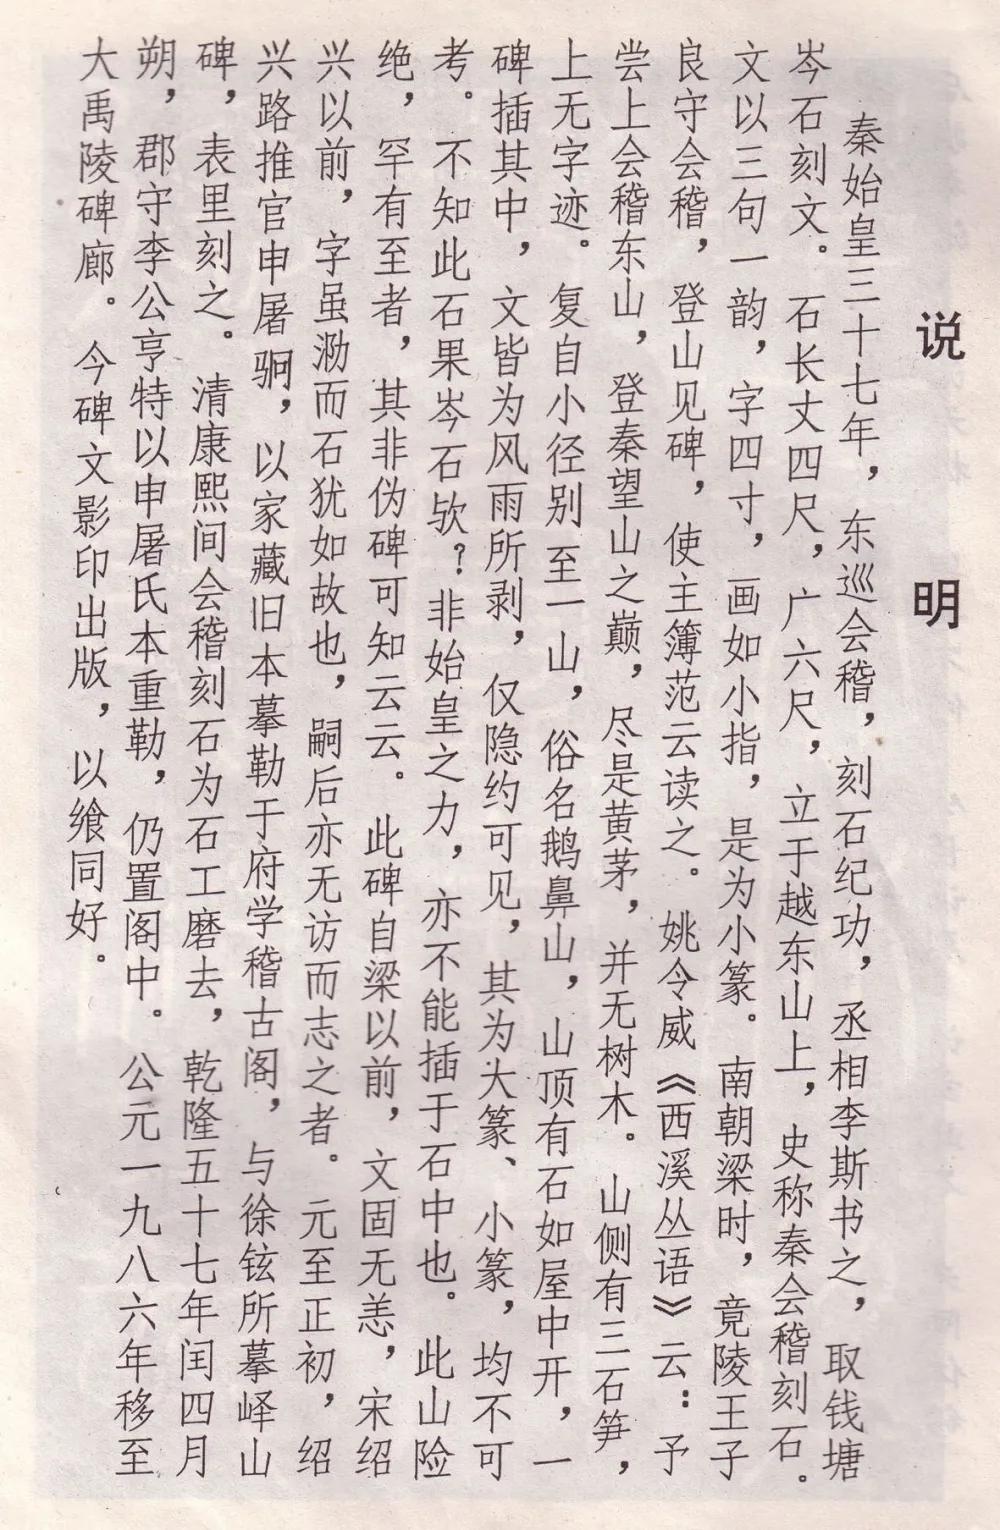 说明
秦始皇三十七年，东巡会稽，刻石纪功，丞相李斯书之，取钱塘
岑石刻文。石长丈四尺，广六尺，立于越东山上，史称秦会稽刻石。
文以三句一韵，字四寸，画如小指，是为小篆。南朝梁时，竟陵王子
良守会稽，登山见碑，使主簿范云读之。姚令威《西溪丛语》云：予
尝上会稽东山，登秦望山之巅，尽是黄茅，并无树木。山侧有三石笋，
上无字迹。复自小径别至一山，俗名鹅鼻山，山顶有石如屋中开，一
碑插其中，文皆为风雨所剥，仅隐约可见，其为大篆、小篆，均不可
考。不知此石果岑石欤？非始皇之力，亦不能插于石中也。此山险
绝，罕有至者，其非伪碑可知云云。此碑自梁以前，文固无恙，宋绍
兴以前，字虽泐而石犹如故也，嗣后亦无访而志之者。元至正初，绍
兴路推官申屠駉，以家藏旧本摹勒于府学稽古阁，与徐铉所摹峄山
碑，表里刻之。清康熙间会稽刻石为石工磨去，乾隆五十七年闰四月
朔，郡守李公亨特以申屠氏本重勒，仍置阁中。公元一九八六年移至
大禹陵碑廊。今碑文影印出版，以飨同好。